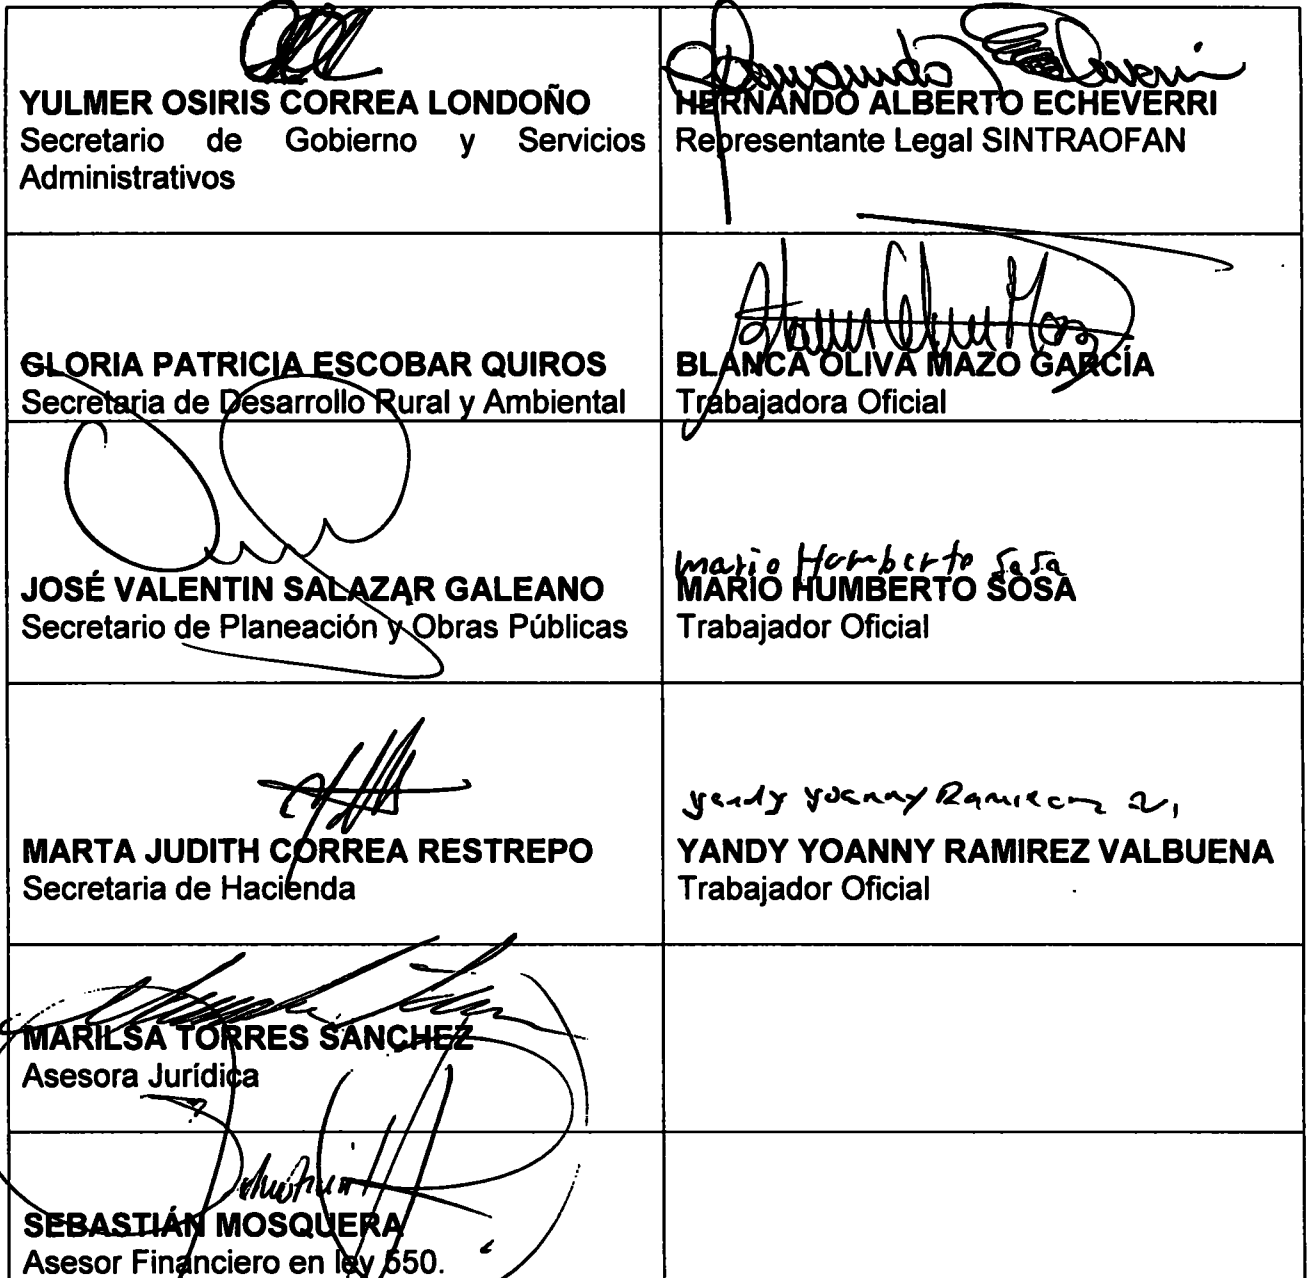 YULMER OSIRIS CORREA LONDOÑO
Secretario de Gobierno y Servicios
Administrativos
HERNANDO ALBERTO ECHEVERRI
Representante Legal SINTRAOFAN
GLORIA PATRICIA ESCOBAR QUIROS
Secretaria de Desarrollo Rural y Ambiental
BLANCA OLIVA MAZO GARCÍA
Trabajadora Oficial
JOSÉ VALENTIN SALAZAR GALEANO
Secretario de Planeación y Obras Públicas
mario Humberto Sosa
MARIO HUMBERTO SOSA
Trabajador Oficial
MARTA JUDITH CORREA RESTREPO
Secretaria de Hacienda
yandy yoanny Ramirez V,
YANDY YOANNY RAMIREZ VALBUENA
Trabajador Oficial
MARILSA TORRES SANCHEZ
Asesora Jurídica
SEBASTIÁN MOSQUERA
Asesor Financiero en ley 550.